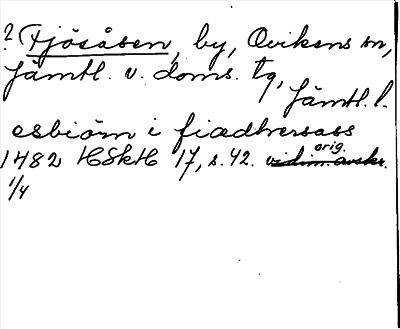 ? Fjösåsen, by, Ovikens sn,
Jämtl. v. doms. tg,
Jämtl. l.
esbiörn i fiædhersass
1482 HSkH 17, s. 42. vidim. avskr. orig.
1/4